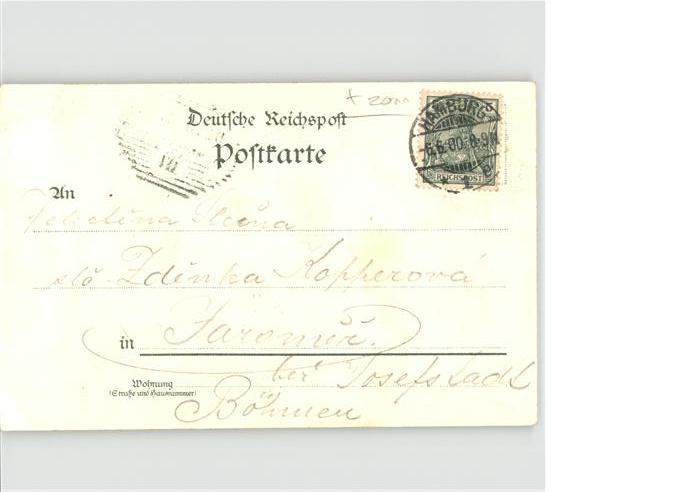 + 2000
Deutsche Reichspost
Postkarte
HAMBURG
-6.6.00. 8-9N
* 1 c
REICHSPOST
An
slč. Zdinka Kopperová
in Jaroměř.
bei Josefstadt
Wohnung
(Straße und Hausnummer)
Böhmen